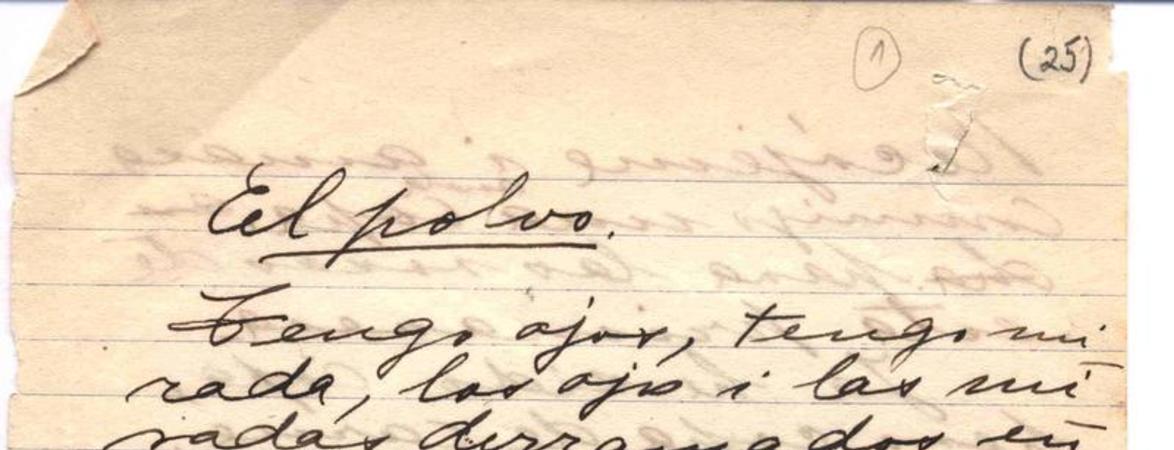 1 (25)
El polvo.
Tengo ojos, tengo mi
rada, los ojos i las mi
radas derramados en